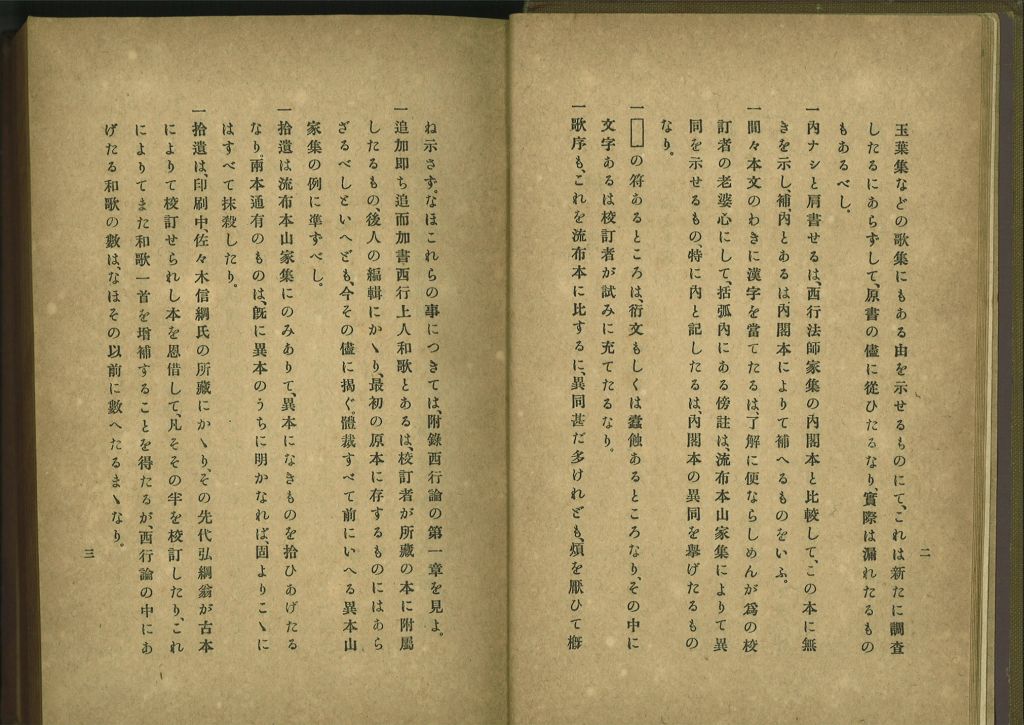 玉葉集などの歌集にもある由を示せるものにて、これは新たに調査
したるにあらずして、原書の儘に從ひたるなり、實際は漏れたるもの
もあるべし。
一內ナシと肩書せるは、西行法師家集の內閣本と比較して、この本に無
きを示し、補、內とあるは內閣本によりて補へるものをいふ。
一間々本文のわきに漢字を當てたるは、了解に便ならしめんが爲の校
訂者の老婆心にして、括弧內にある傍註は、流布本山家集によりて異
同を示せるもの、特に內と記したるは、內閣本の異同を擧げたるもの
なり。
一□の符あるところは、衍文もしくは蠧蝕あるところなり、その中に
文字あるは校訂者が試みに充てたるなり。
一歌序も、これを流布本に比するに、異同甚だ多けれども、煩を厭ひて槪
二
ね示さず。なほこれらの事につきては、附錄西行論の第一章を見よ。
一追加卽ち追而加書西行上人和歌とあるは、校訂者が所藏の本に附屬
したるもの、後人の編輯にかゝり、最初の原本に存するものにはあら
ざるべしといへども、今その儘に揭ぐ。體裁すべて前にいへる異本山
家集の例に準ずべし。
一拾遺は流布本山家集にのみありて、異本になきものを拾ひあげたる
なり。兩本通有のものは、旣に異本のうちに明かなれば、固よりこゝに
はすべて抹殺したり。
一拾遺は、印刷中、佐々木信綱氏の所藏にかゝり、その先代弘綱翁が古本
によりて校訂せられし本を恩借して、凡そその半を校訂したり、これ
によりてまた和歌一首を增補することを得たるが、西行論の中にあ
げたる和歌の數は、なほその以前に數へたるまゝなり。
三